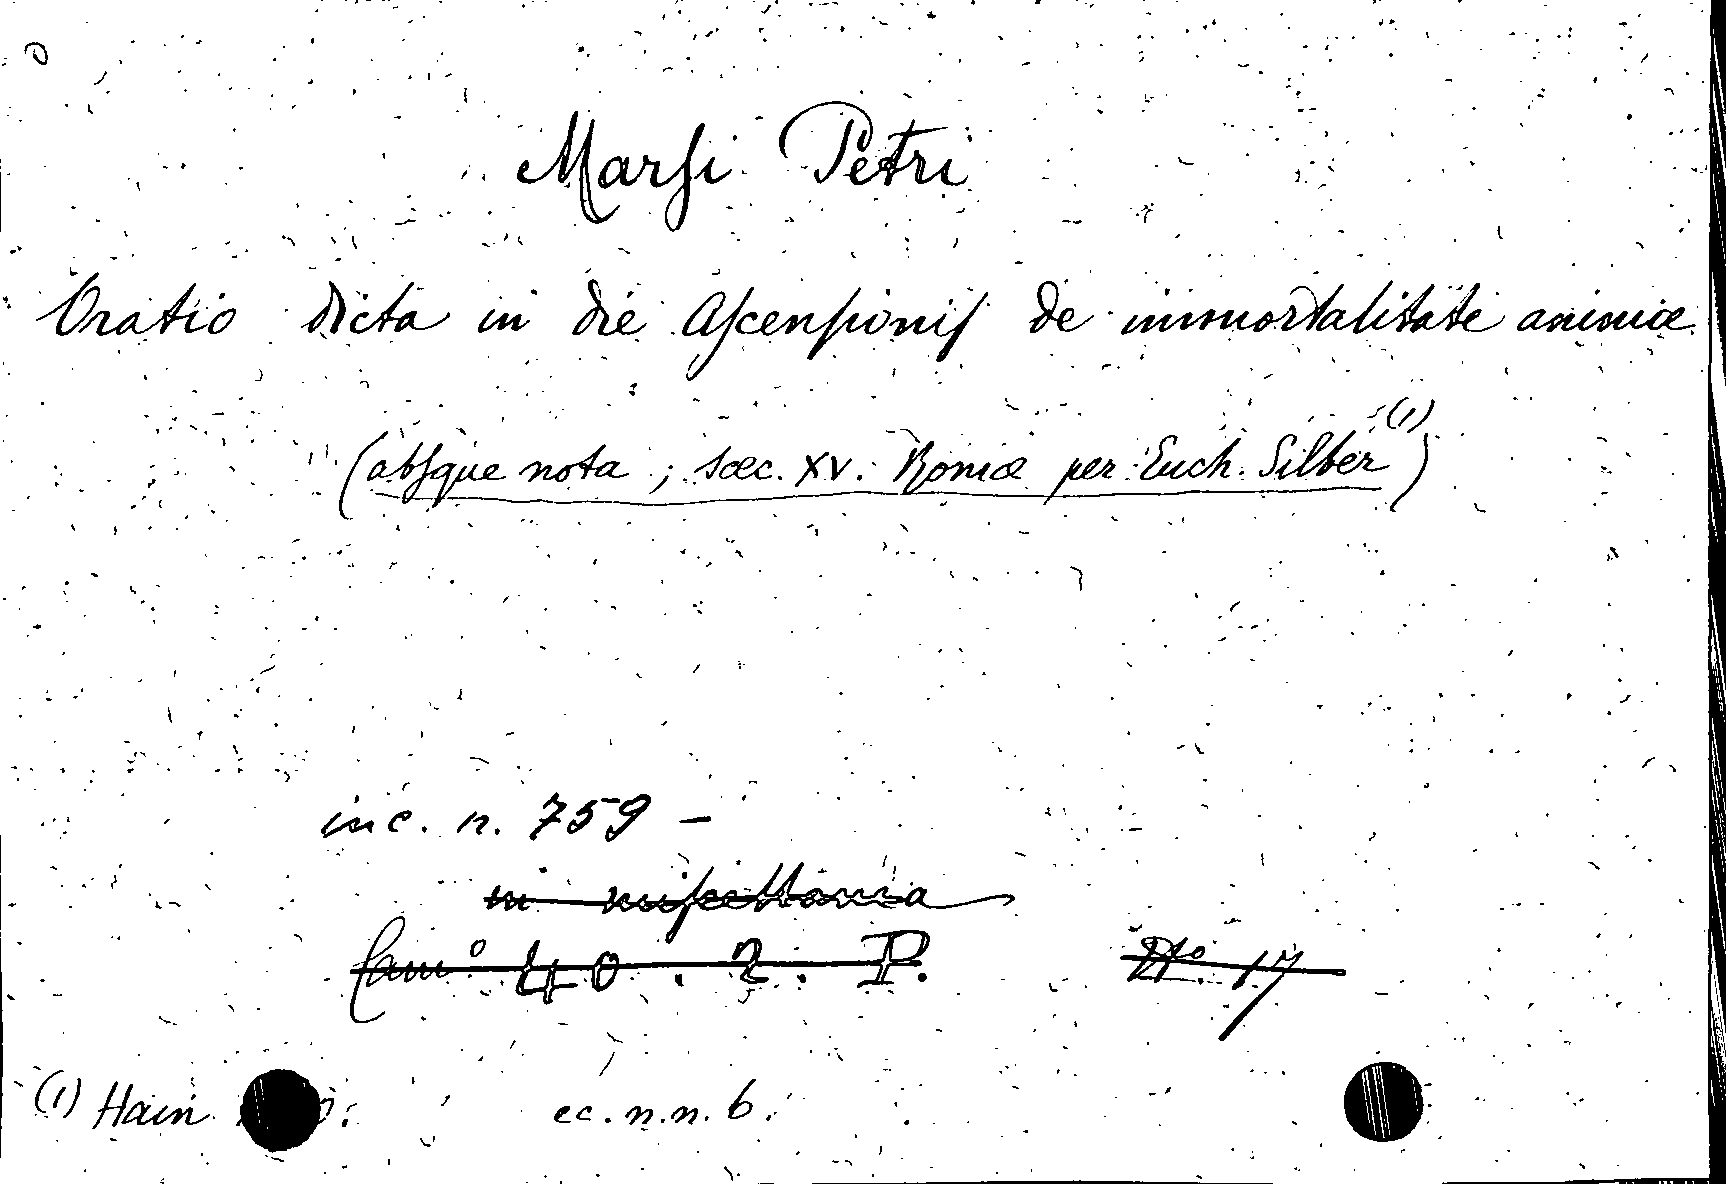 Marsi Petri
Oratio dicta in die Ascensionis de immortalitate animæ
(absque nota ; sæc. XV. Romæ per Euch. Silber (1))
inc. n. 759 –
in miscellanea
Cam° 40 . 2 . P. N° 17
(1) Hain cc. n.n. 6.